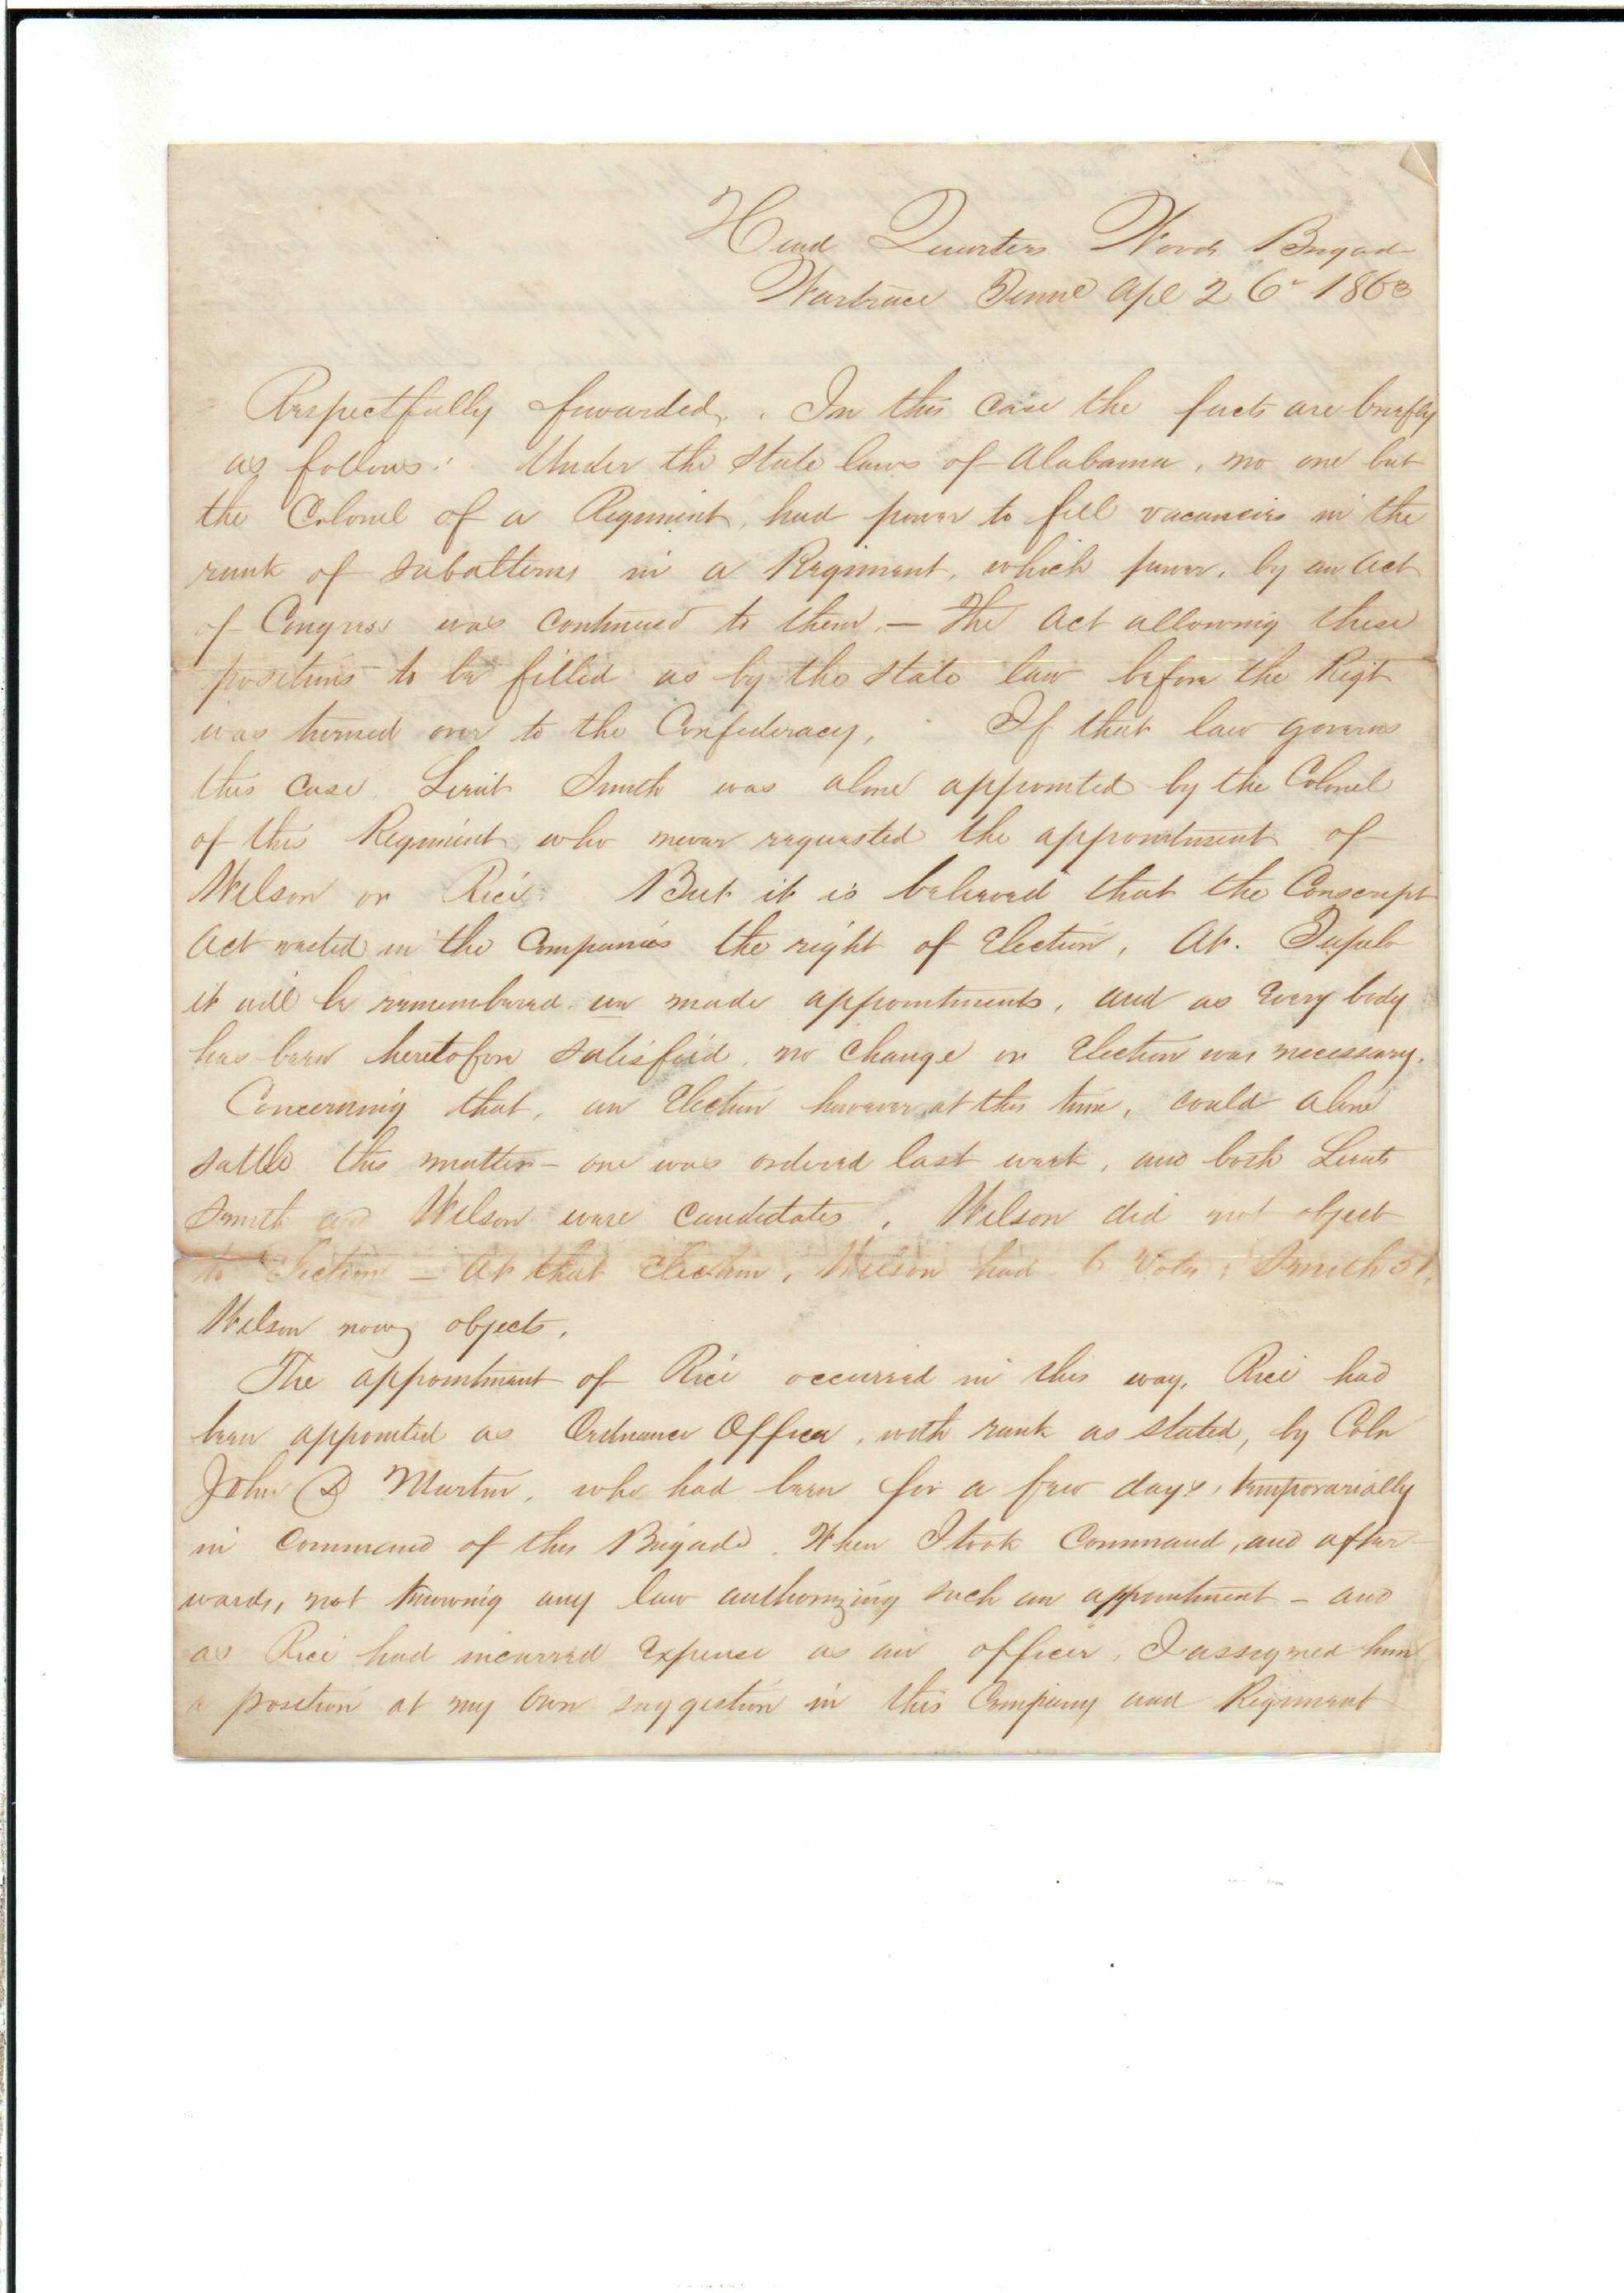 Head Quarters Woods Brigad
Wartrace Tenne Apl 26 1863
Respectfully forwarded. In this case the facts are briefly
as follows: Under the State laws of Alabama, no one but
the Colonel of a Regiment, had power to fill vacancies in the
rank of subalterns in a Regiment, which power, by an Act
of Congress was continued to them, — The Act allowing these
positions to be filled as by the State law before the Regt
was turned over to the Confederacy, If that law governs
this case Lieut Smith was alone appointed by the Colonel
of this Regiment, who never requested the appointment of
Wilson or Rice. But it is believed that the Conscript
Act vested in the Companies the right of Election, At Tupelo
it will be remembered we made appointments, and as every body
has been heretofore satisfied, no change or Election was necessary.
Concerning that, an Election however at this time, could alone
settle this matter — one was ordered last week, and both Lieuts
Smith and Wilson were candidates, Wilson did not object
to Election — At that Election, Wilson had 6 Votes, Smith
Wilson now objects.
The appointment of Rice occurred in this way, Rice had
been appointed as Ordnance Officer, with rank as stated, by Coln
John D Martin, who had been for a few days, temporarially
in Command of this Brigade. When I took Command, and after-
wards, not knowing any law authorizing such an appointment — and
as Rice had incurred expense as an officer, I assigned him
a position at my own suggestion in this Company and Regiment